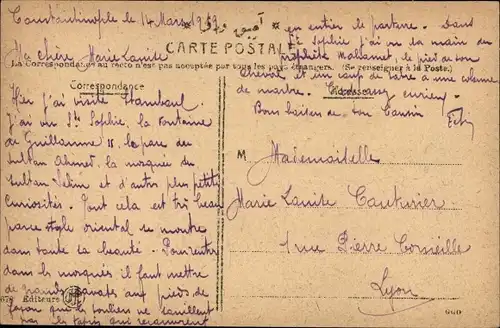 Constantinople le 14 Mars 1919
Ma chère Marie Louise
CARTE POSTALE
La Correspondance au recto n'est pas acceptée par tous les pays étrangers. (Se renseigner à la Poste.)
Correspondance
Hier j'ai visité Stamboul.
J'ai vu Ste Sophie, la Fontaine
de Guillaume II, le parc du
Sultan Ahmet, la mosquée du
Sultan Selim et d'autres plus petites
curiosités. Tout cela est très beau
parce style oriental se montre
dans toute la beauté. Pour entrer
dans les mosquées il faut mettre
de grands savates aux pieds de
façon que les souliers ne souillent
pas les tapis qui recouvrent
Editeurs
en entier le parterre. Dans
Ste Sophie j'ai vu la main du
prophète Mahomet, le pied de son
cheval et un coup de sabre à une colonne
de marbre.
Bons baisers de ton Cousin
Adresse
M Mademoiselle
Marie Louise Couturier
1 rue Pierre Corneille
Lyon